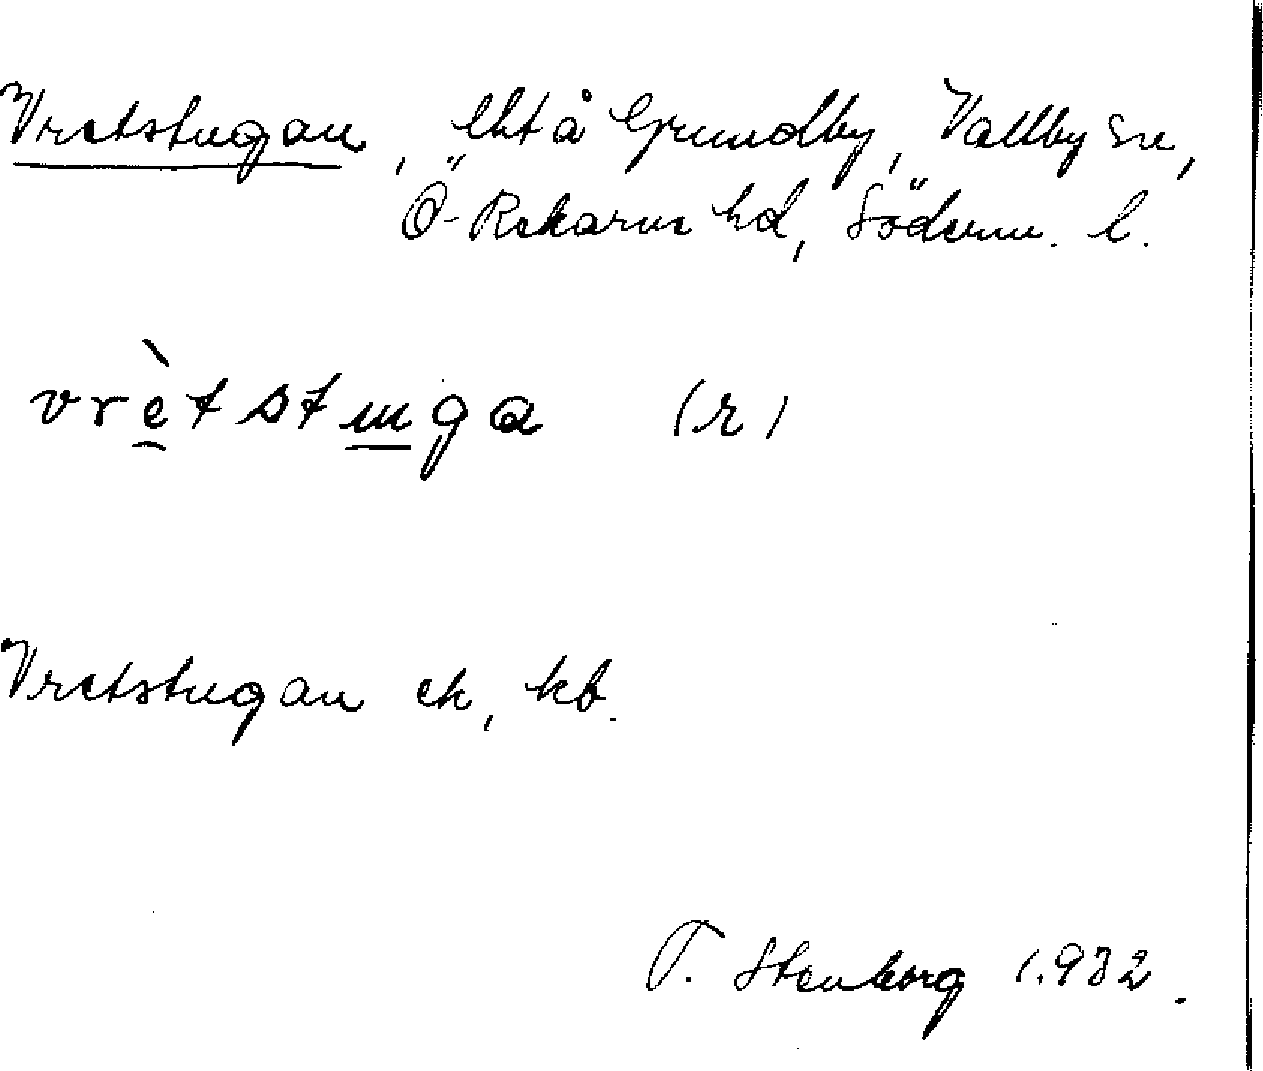 Vretstugan, lht å Grundby, Vallby sn,
Ö. Rekarne hd, Söderm. l.
vrètstuga (r)
Vretstugan ek, kb.
T. Stenborg 1932.